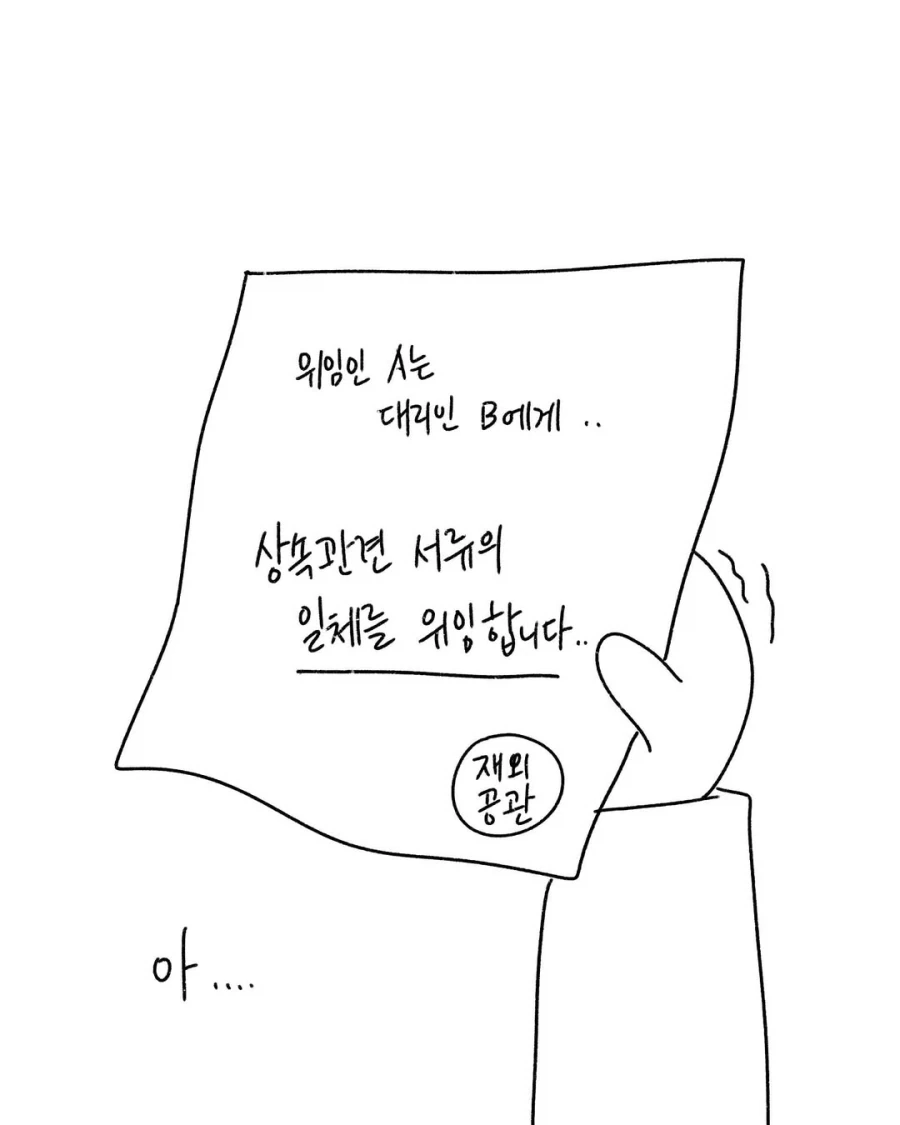 위임인 A는
대리인 B에게 ..
상속관견 서류의
일체를 위임합니다..
재외
공관
아....